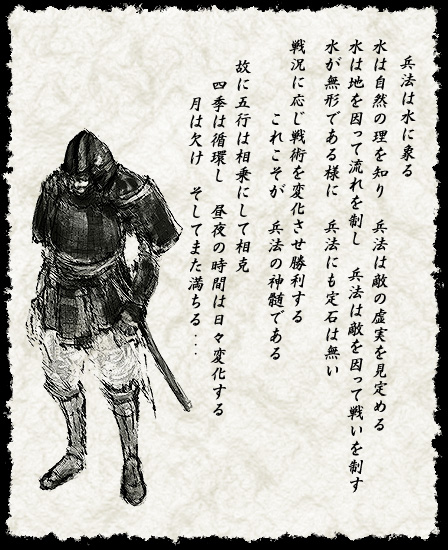 兵法は水に象る
水は自然の理を知り　兵法は敵の虚実を見定める
水は地を因って流れを制し　兵法は敵を因って戦いを制す
水が無形である様に　兵法にも定石は無い
戦況に応じ戦術を変化させ勝利する
これこそが　兵法の神髄である
故に五行は相乗にして相克
四季は循環し　昼夜の時間は日々変化する
月は欠け　そしてまた満ちる・・・